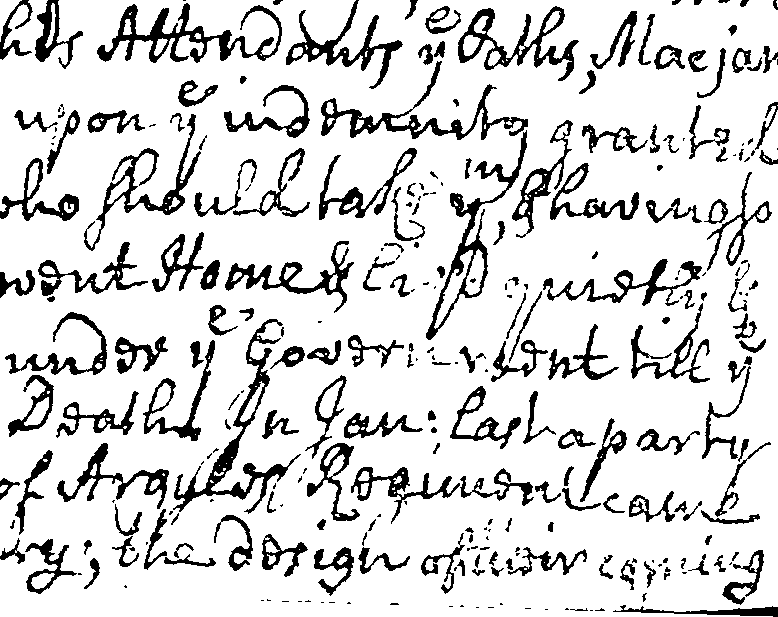 his Attendants yᵉ Oaths, Macjan
upon yᵉ indemnity granted
who should take yᵐ, & having so
went Home & liv'd quietly &
under yᵉ Government till yᵉ
Death. In Jan: last a party
of Argyles Regiment came
the design of their coming